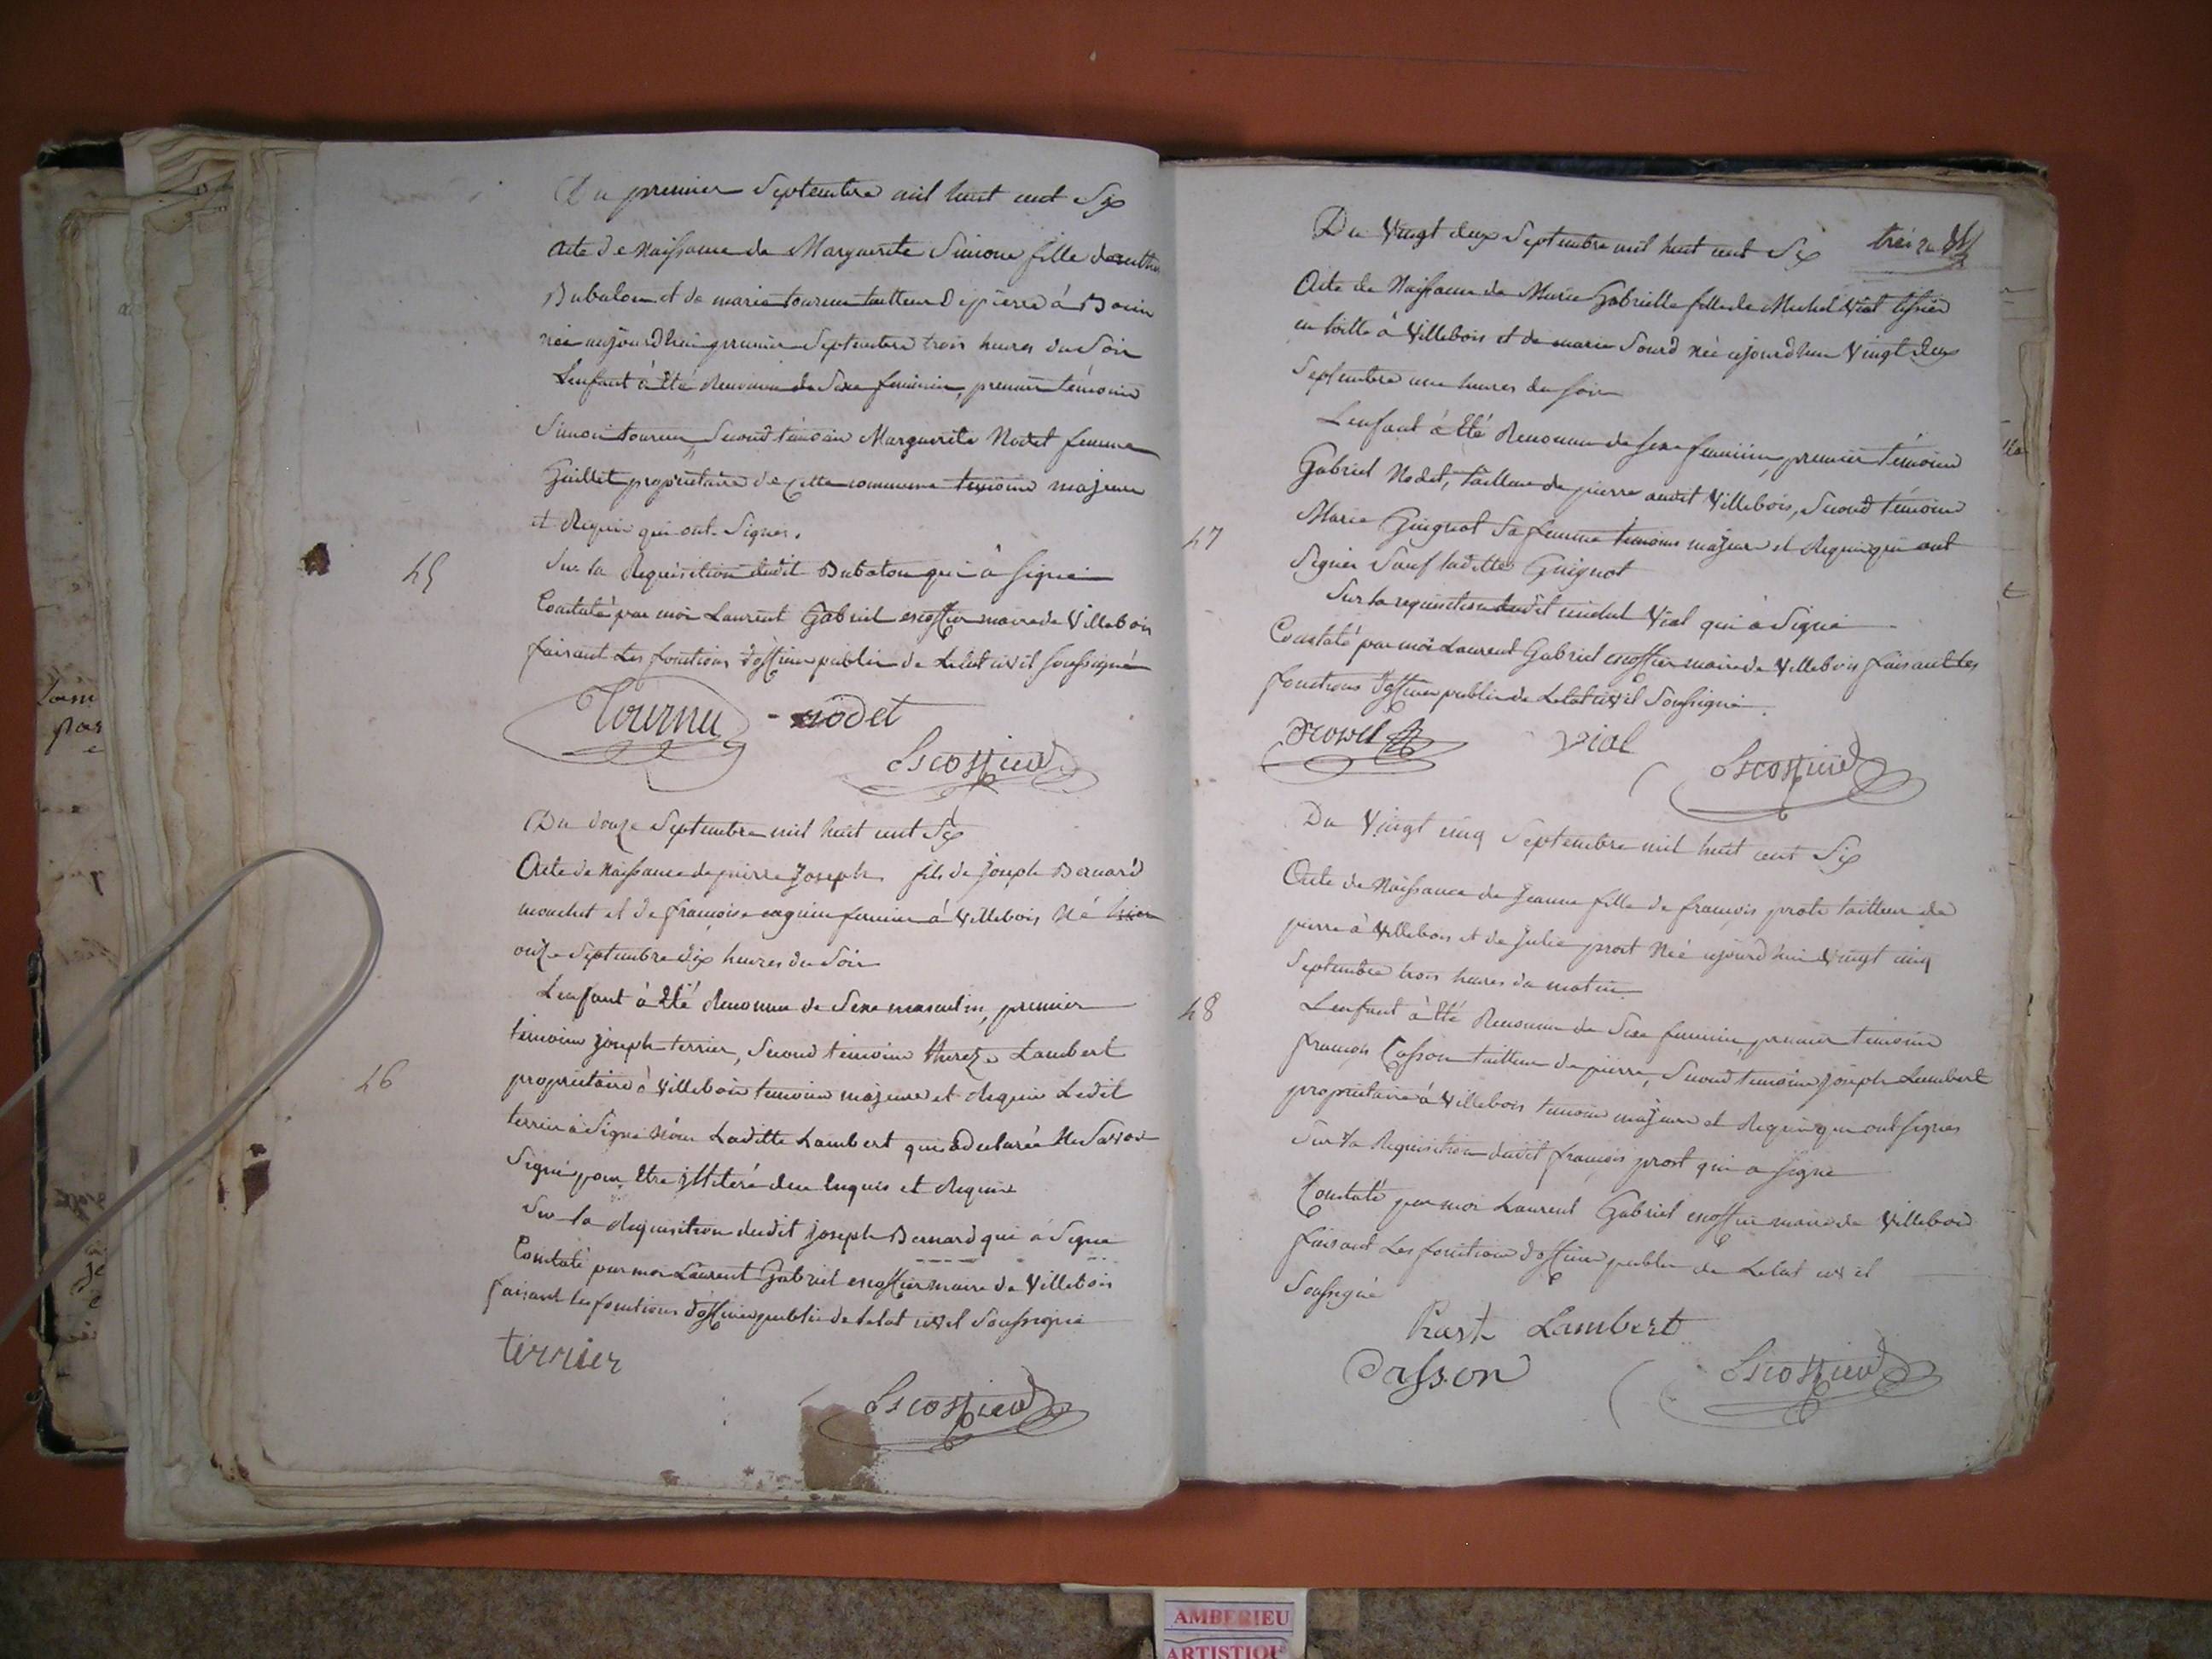 Du premier Septembre mil huit cent Six
Acte de Naissance de Marguerite Simone fille de
Bubaton et de marie tournu tailleur de pierre à Bouis
née aujourdhui premier Septembre trois heures du Soir
Lenfant à Eté Reconnu de Sexe feminin, premier témoins
Simon tournu, Second témoin Marguerite Nodet femme
Guillet propriétaire de Cette commune temoins majeurs
et Requis qui ont Signés.
45
Sur la Requisition dudit Bubaton qui à Signé
Constaté par moi Laurent Gabriel escoffier maire de Villebois
faisant Les fonctions d'officier public de Letat civil Soussigné
Tournu - nodet
Escoffier
Du douze Septembre mil huit cent Six
Acte de Naissance de pierre Joseph fils de Joseph Bernard
mouchet et de françoise à Villebois Né hier
onze Septembre dix heures du Soir
Lenfant à Eté Reconnu de Sexe masculin, premier
témoins joseph terrier, Second temoins thereze Lambert
46
propriétaire à Villebois temoins majeurs et Requis Ledit
terrier à Signé Non Laditte Lambert qui à declarée Ne Savoir
Signé pour Etre illiteré deu Enquis et Requise
Sur la Requisition dudit joseph Bernard qui à Signé
Constaté par moi Laurent Gabriel escoffier maire de Villebois
faisant les fonctions d'officier public de letat civil Soussigné
terrier
Escoffier
Du Vingt deux Septembre mil huit cent Six
treize
Acte de Naissance de Marie Gabrielle fille de Michel Vial tissier
en toille à Villebois et de marie Sourd née ajourdhui Vingt deux
Septembre une heures du soir
Lenfant à Eté Reconnu de sexe feminin, premier témoins
Gabriel Nodet, tailleur de pierre audit Villebois, Second témoins
47
Marie Guignot Sa femme temoins majeur et Requis qui ont
Signés Sauf laditte Guignot
Sur la requisition dudit michel Vial qui à Signé
Constaté par moi Laurent Gabriel escoffier maire de Villebois faisant les
fonctions d'officier public de Letat civil Soussigné
vial
Escoffier
Du Vingt cinq Septembre mil huit cent Six
Acte de Naissance de Jeanne fille de françois prost tailleur de
pierre à Villebois et de Julie prost Née ajourdhui Vingt cinq
Septembre trois heures du matin
48
Lenfant à Eté Reconnu de Sexe feminin, premier temoins
françois Casson tailleur de pierre, Second temoins Joseph Lambert
propriétaire à Villebois temoins majeurs et Requis qui ont Signés
Sur la Requisition dudit françois prost qui a Signé
Constaté par moi Laurent Gabriel escoffier maire de Villebois
faisant Les fonctions d'officier public de Letat civil
Soussigné
Prost Lambert
Casson
Escoffier
AMBERIEU
ARTISTIQUE